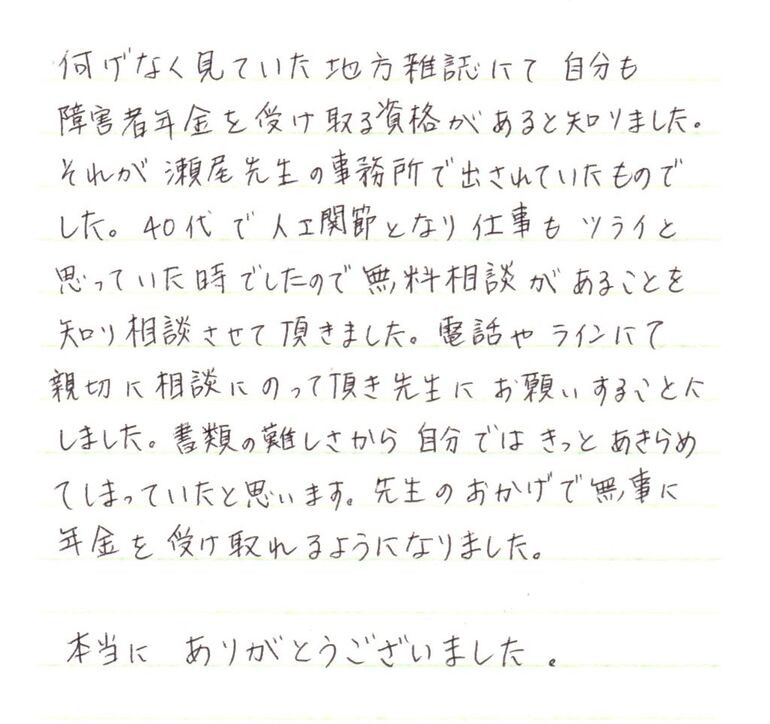 何げなく見ていた地方雑誌にて 自分も
障害者年金を受け取る資格があると知りました。
それが瀬尾先生の事務所で出されていたもので
した。40代で人工関節となり仕事もツライと
思っていた時でしたので無料相談があることを
知り相談させて頂きました。電話やラインにて
親切に相談にのって頂き先生にお願いすることに
しました。書類の難しさから自分ではきっとあきらめ
てしまっていたと思います。先生のおかげで無事に
年金を受け取れるようになりました。
本当に ありがとうございました。